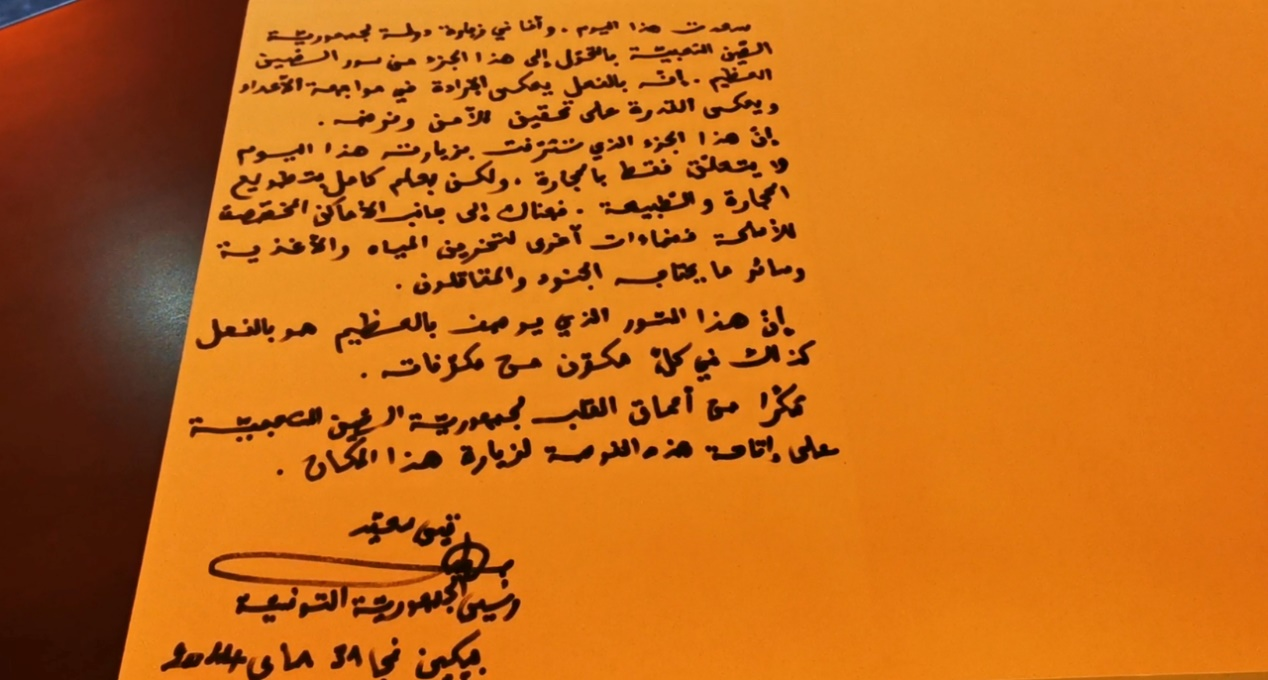 سعدت هذا اليوم . وأنا في زيارة دولة لجمهوريّة
الصّين الشعبيّة بالتحوّل إلى هذا الجزء من سور الصّين
العظيم . إنّه بالفعل يعكس الإرادة في مواجهة الأعداء
ويعكس القدرة على تحقيق الأمن وفرضه .
إنّ هذا الجزء الذي تشرّفت بزيارته هذا اليوم
لا يتعلّق فقط بالحجارة . ولكن بعلم كامل بتطويع
الحجارة والطبيعة . فهناك إلى جانب الأماكن المخصّصة
للأسلحة فضاءات أخرى لتخزين المياه والأغذية
وسائر ما يحتاجه الجنود والمقاتلون .
إنّ هذا السّور الذي يوصف بالعظيم هو بالفعل
كذلك في كلّ مكوّن من مكوّناته .
شكرًا من أعماق القلب لجمهوريّة الصّين الشعبيّة
على إتاحة هذه الفرصة لزيارة هذا المكان .
قيس سعيّد
رئيس الجمهوريّة التّونسيّة
بيكين في 31 ماي 2024